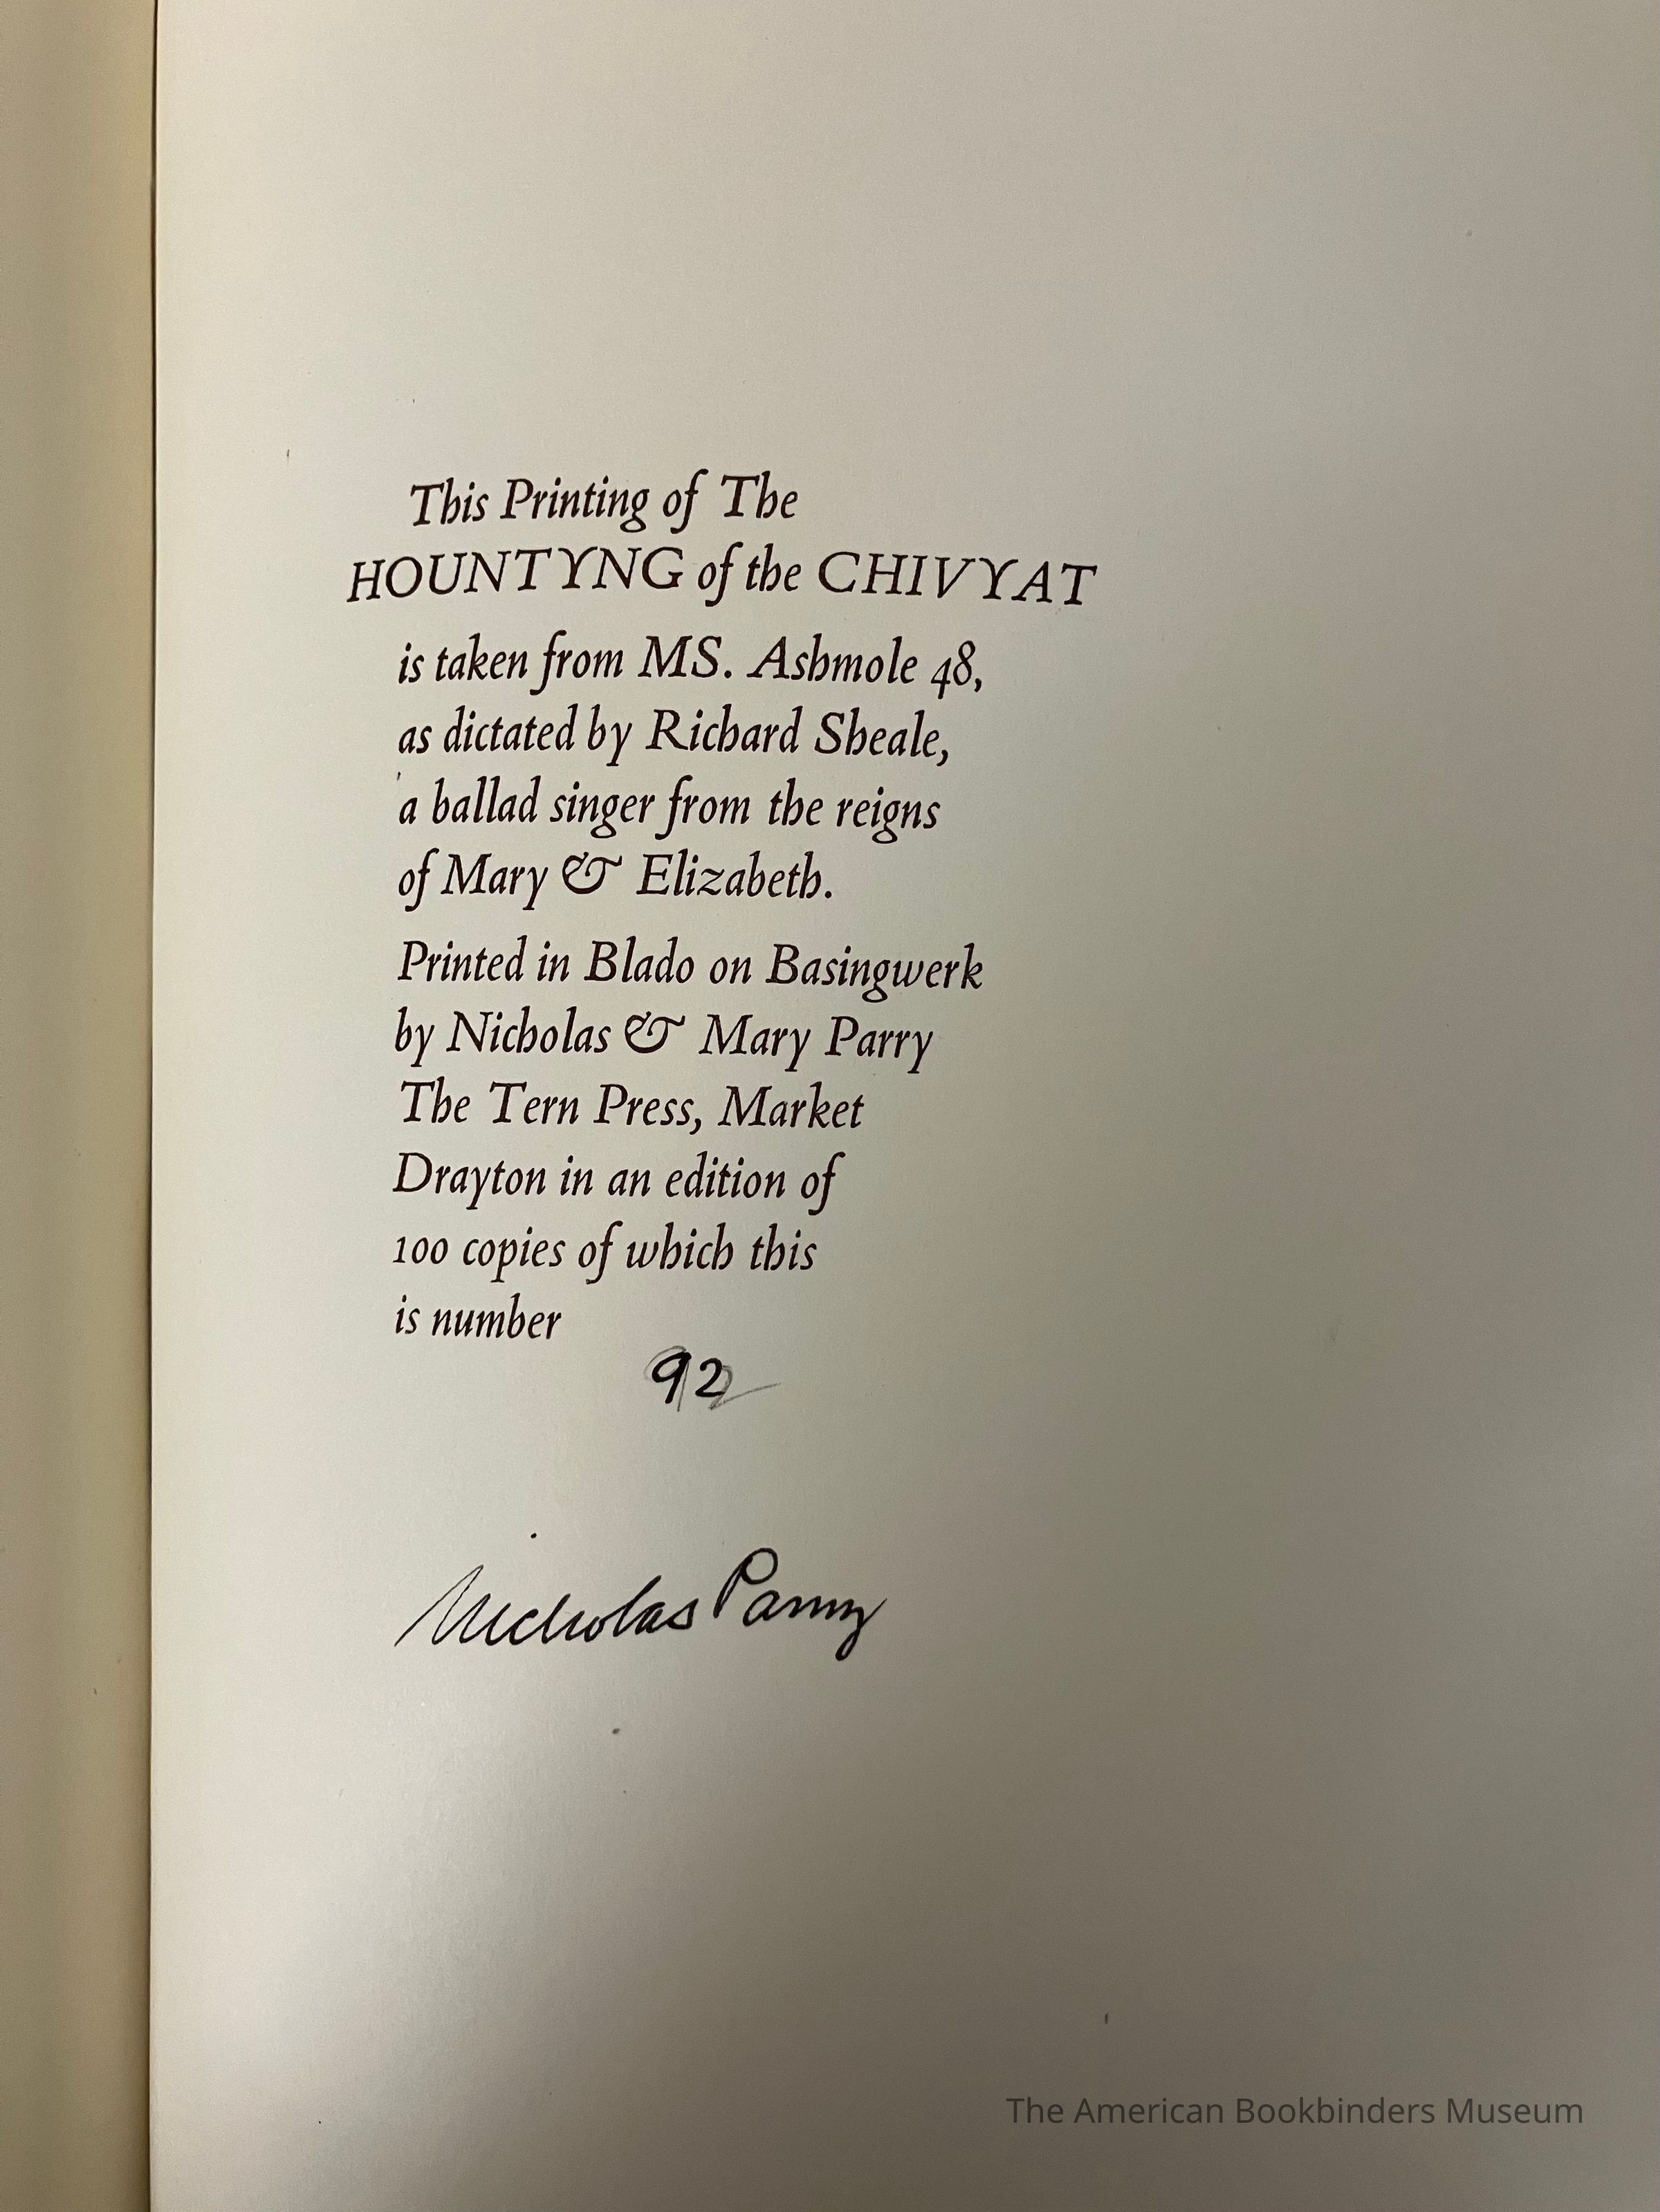 This Printing of The
HOUNTYNG of the CHIVYAT
is taken from MS. Ashmole 48,
as dictated by Richard Sheale,
a ballad singer from the reigns
of Mary & Elizabeth.
Printed in Blado on Basingwerk
by Nicholas & Mary Parry
The Tern Press, Market
Drayton in an edition of
100 copies of which this
is number
92
Nicholas Parry
The American Bookbinders Museum